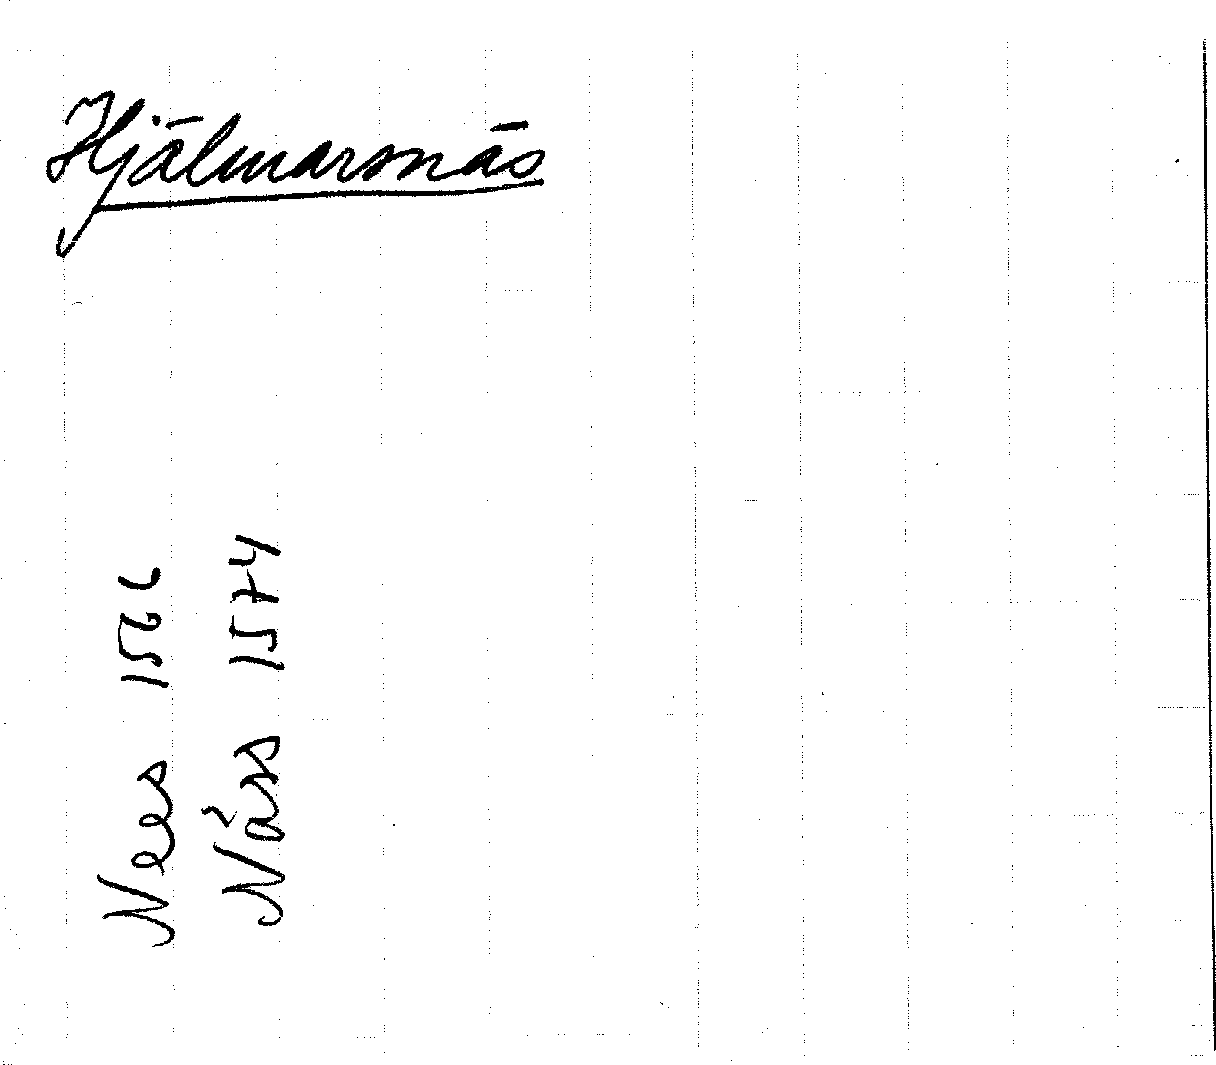 Hjälmarsnäs
Nees 1566
Näss 1574